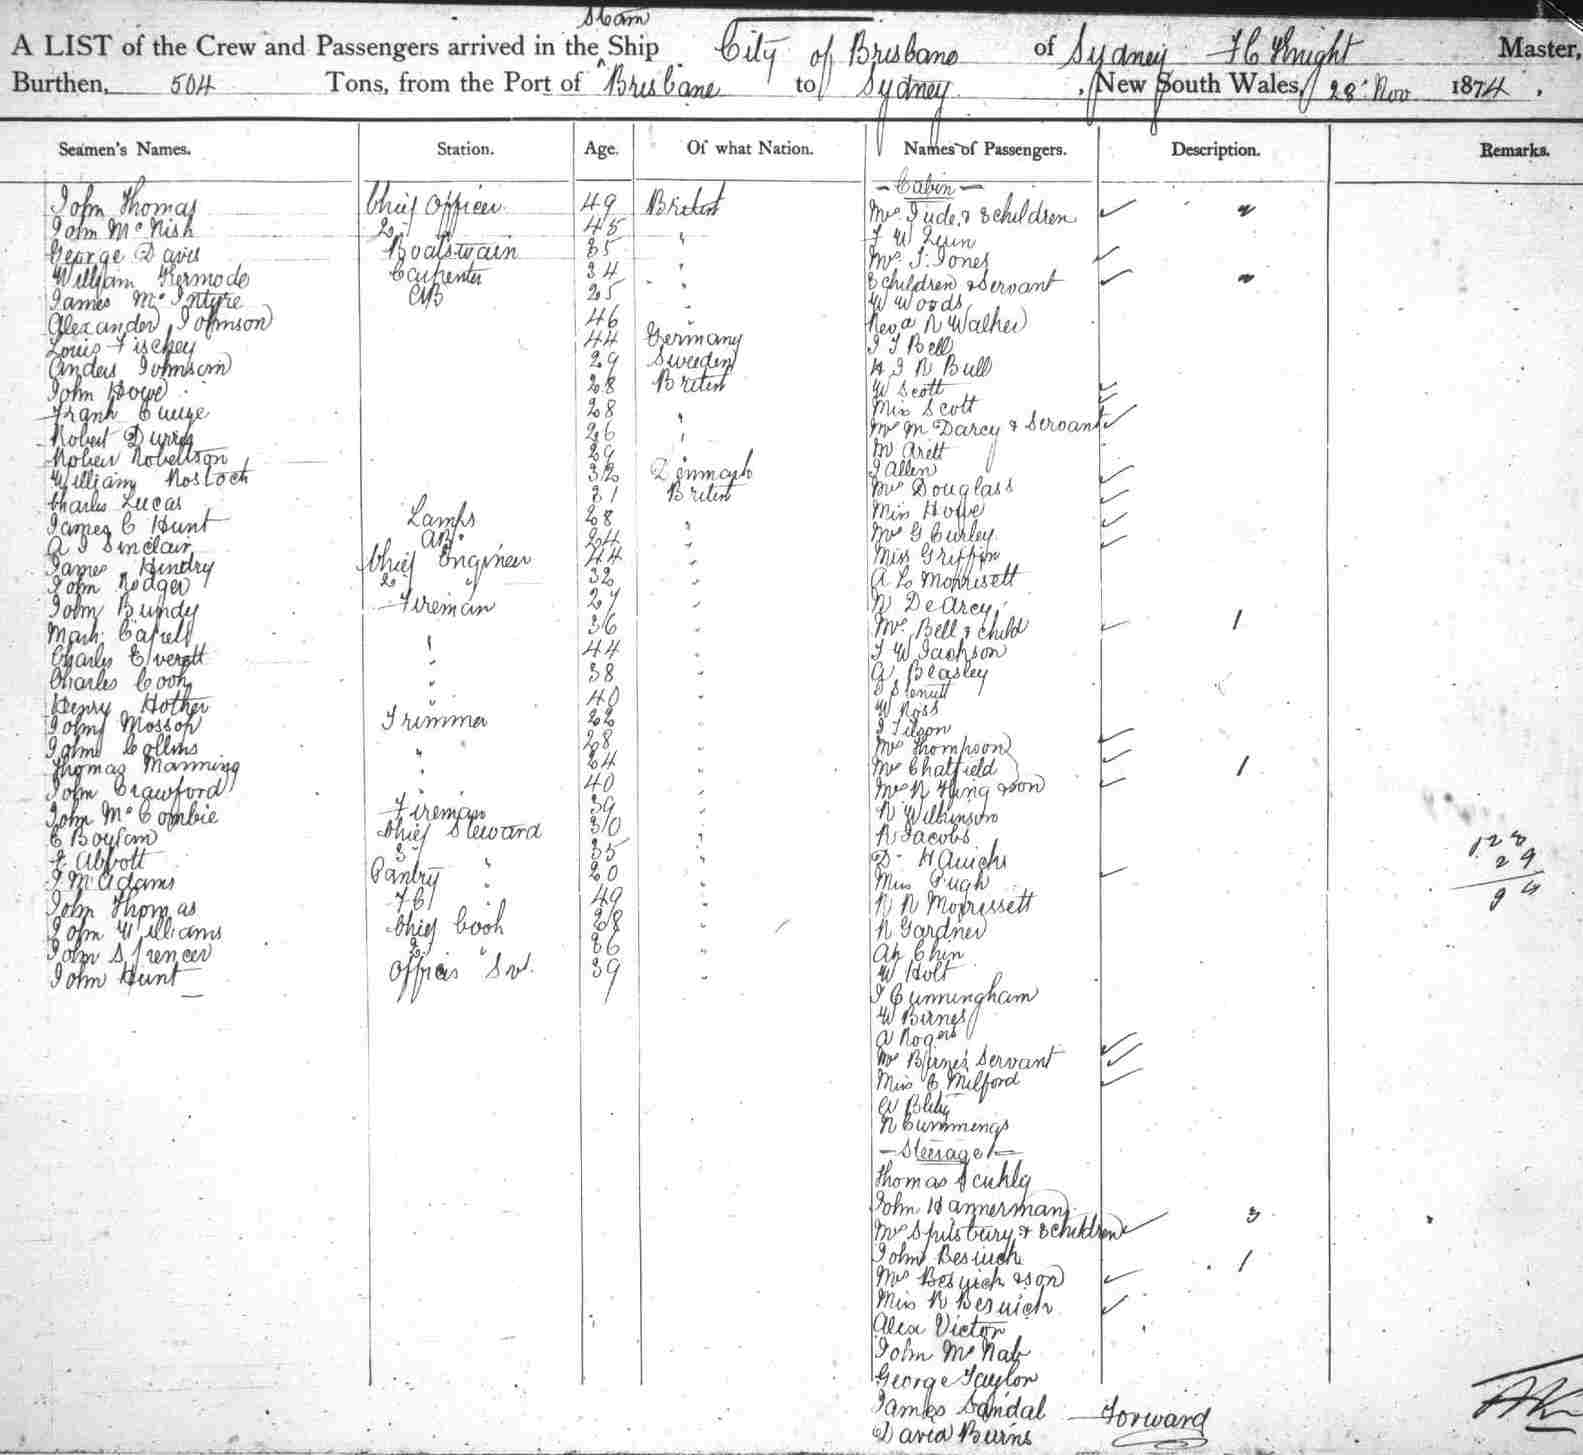 Steam
A LIST of the Crew and Passengers arrived in the Ship City of Brisbane of Sydney F C Knight Master,
Burthen, 504 Tons, from the Port of Brisbane to Sydney, New South Wales, 28 Nov 1874.
Seamen's Names. Station. Age. Of what Nation. Names of Passengers. Description. Remarks.
John Thomas Chief Officer 49 British
John McNish 2 " 45 "
George Davis Boatswain 35 "
William Kermode Carpenter 34 "
James McIntyre AB 25 "
Alexander Johnson 46 "
Louis 44 Germany
Anders Johnson 29 Sweden
John Howe 28 British
Frank 28 "
Robert 26 "
Robert Robertson 29 "
William Rostock 32 Denmark
Charles Lucas 31 British
James C Hunt Lamps 28 "
A J Sinclair AB 24 "
James Hendry Chief Engineer 44 "
John Rodger 2 " 32 "
John Bundy Fireman 27 "
Mark 36 "
Charles Everett " 44 "
Charles Cook " 38 "
Henry Hother " 40 "
John Mossop Trimmer 22 "
John Collins 28 "
Thomas Manning " 24 "
John Crawford " 40 "
John McCombie Fireman 39 "
E Boylan Chief Steward 30 "
F Abbott 35 "
J McAdams Pantry " 20 "
John Thomas F C " 49 "
John Williams Chief Cook 28 "
John Spencer 2 " 36 "
John Hunt Officers Svt. 39 "
- Cabin -
Mrs Jude & children
F W
Mrs J. Jones
children & Servant
W Woods
Revd R Walker
J T Bell
H J R Bull
W Scott
Miss Scott
Mrs M Darcy & Servant
Mr Arett
J Allen
Mrs Douglass
Miss Howe
Mrs G Curley
Miss Griffin
A L Morrisett
R DeArcy
Mrs Bell & child 1
F W Jackson
G Beasley
W Ross
J Tilson
Mrs Thompson
Mrs Chatfield
Mrs R King & son 1
R Wilkinson
R Jacobs
Dr
Miss Pugh
R R Morrissett
R Gardner
Ah Chin
W Holt
J Cunningham
W Birnes
A Rogers
Mrs Birnes Servant
Miss E Milford
R Cummings
- Steerage -
Thomas
John Hannerman
Mrs Spilsbury & 3 children 3
John Beswick
Mrs Beswick & son 1
Miss R Beswick
Alex Victor
John McNab
George Taylor
James Sandal
David Burns
Forward